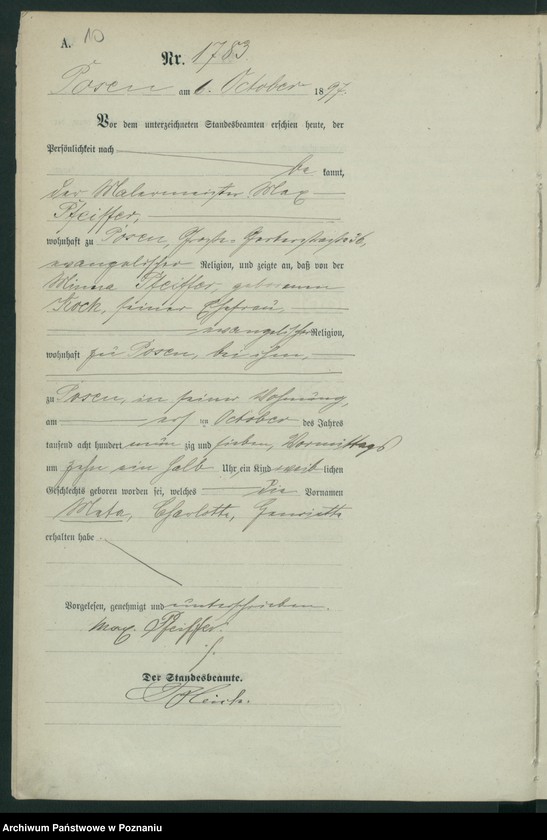 A. 10
Nr. 1783.
Posen am 6. October 1897.
Vor dem unterzeichneten Standesbeamten erschien heute, der
Persönlichkeit nach
be kannt,
der Malermeister Max
Pfeiffer,
wohnhaft zu Posen, Große Gerberstraße
evangelischer Religion, und zeigte an, daß von der
Minna Pfeiffer, geborenen
Kock, seiner Ehefrau,
evangelischer Religion,
wohnhaft zu Posen, bei ihm,
zu Posen, in seiner Wohnung,
am ersten October des Jahres
tausend acht hundert neun zig und sieben, Vormittags
um zehn ein halb Uhr, ein Kind weib lichen
Geschlechts geboren worden sei, welches die Vornamen
Meta, Charlotte, Henriette
erhalten habe.
Vorgelesen, genehmigt und unterschrieben.
Max Pfeiffer.
Der Standesbeamte.
Archiwum Państwowe w Poznaniu